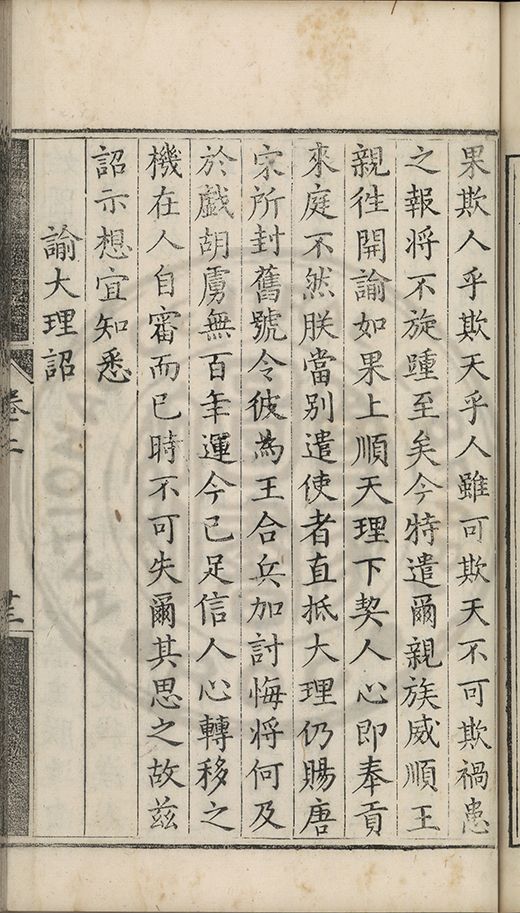 果欺人乎欺天乎人雖可欺天不可欺禍患
之報将不旋踵至矣今特遣爾親族威順王
親徃開諭如果上順天理下契人心即奉貢
來庭不然朕當别遣使者直抵大理仍賜唐
宋所封舊號令彼為王合兵加討悔将何及
於戲胡虜無百年運今已足信人心轉移之
機在人自審而已時不可失爾其思之故兹
詔示想宜知悉
諭大理詔
卷二